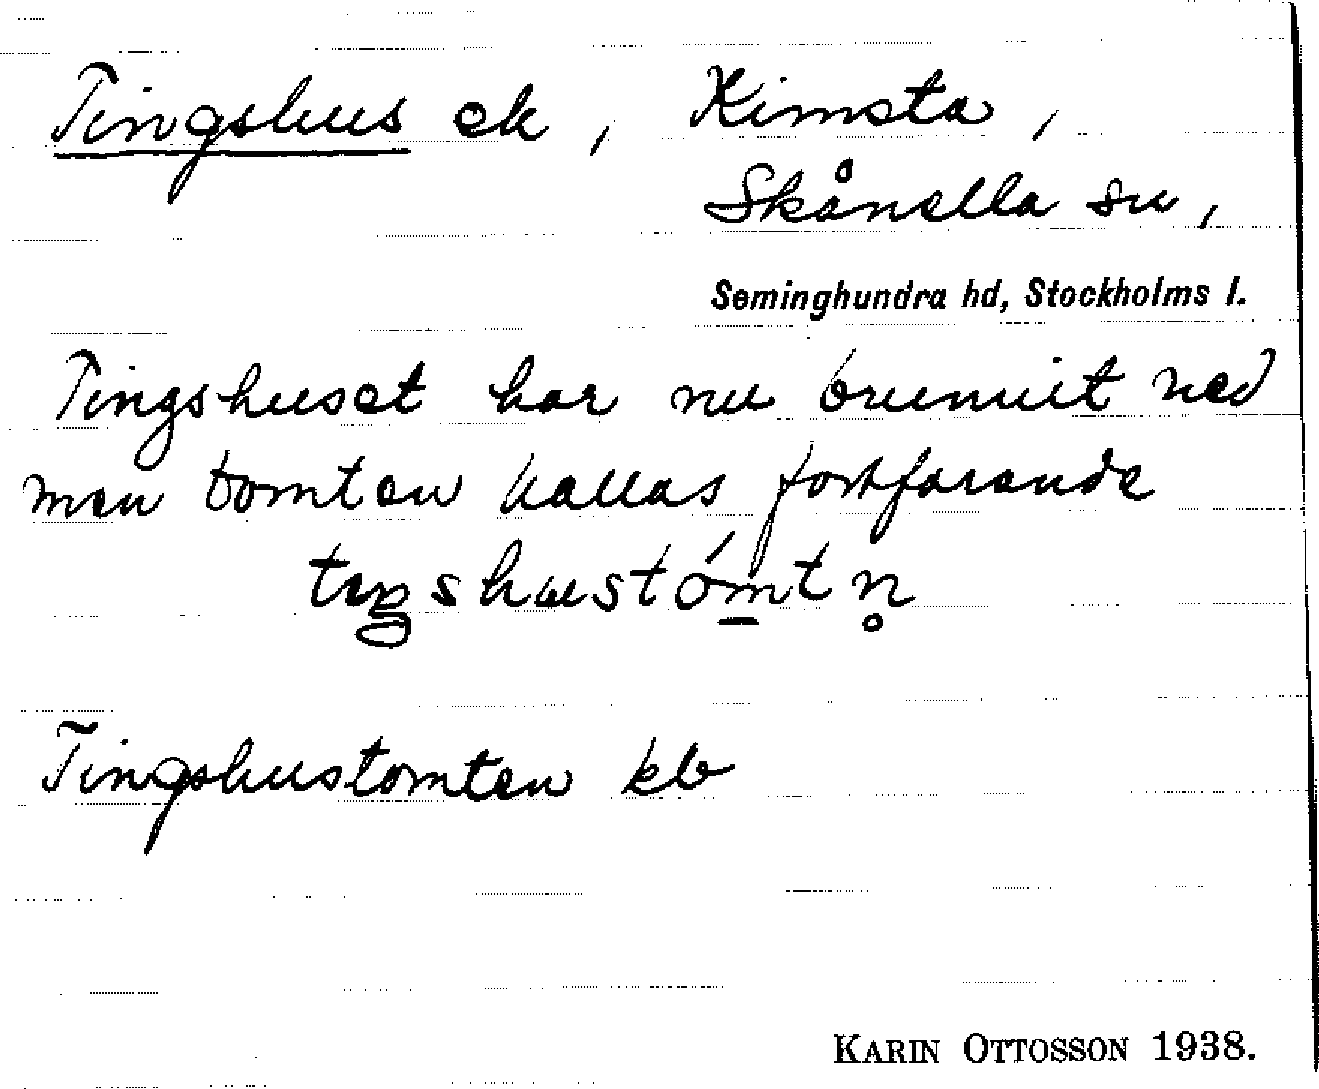 Tingshus ek, Kimsta,
Skånella sn,
Seminghundra hd, Stockholms l.
Tingshuset har nu brunnit ned
men tomten kallas fortfarande
Tingshustomten kb
KARIN OTTOSSON 1938.